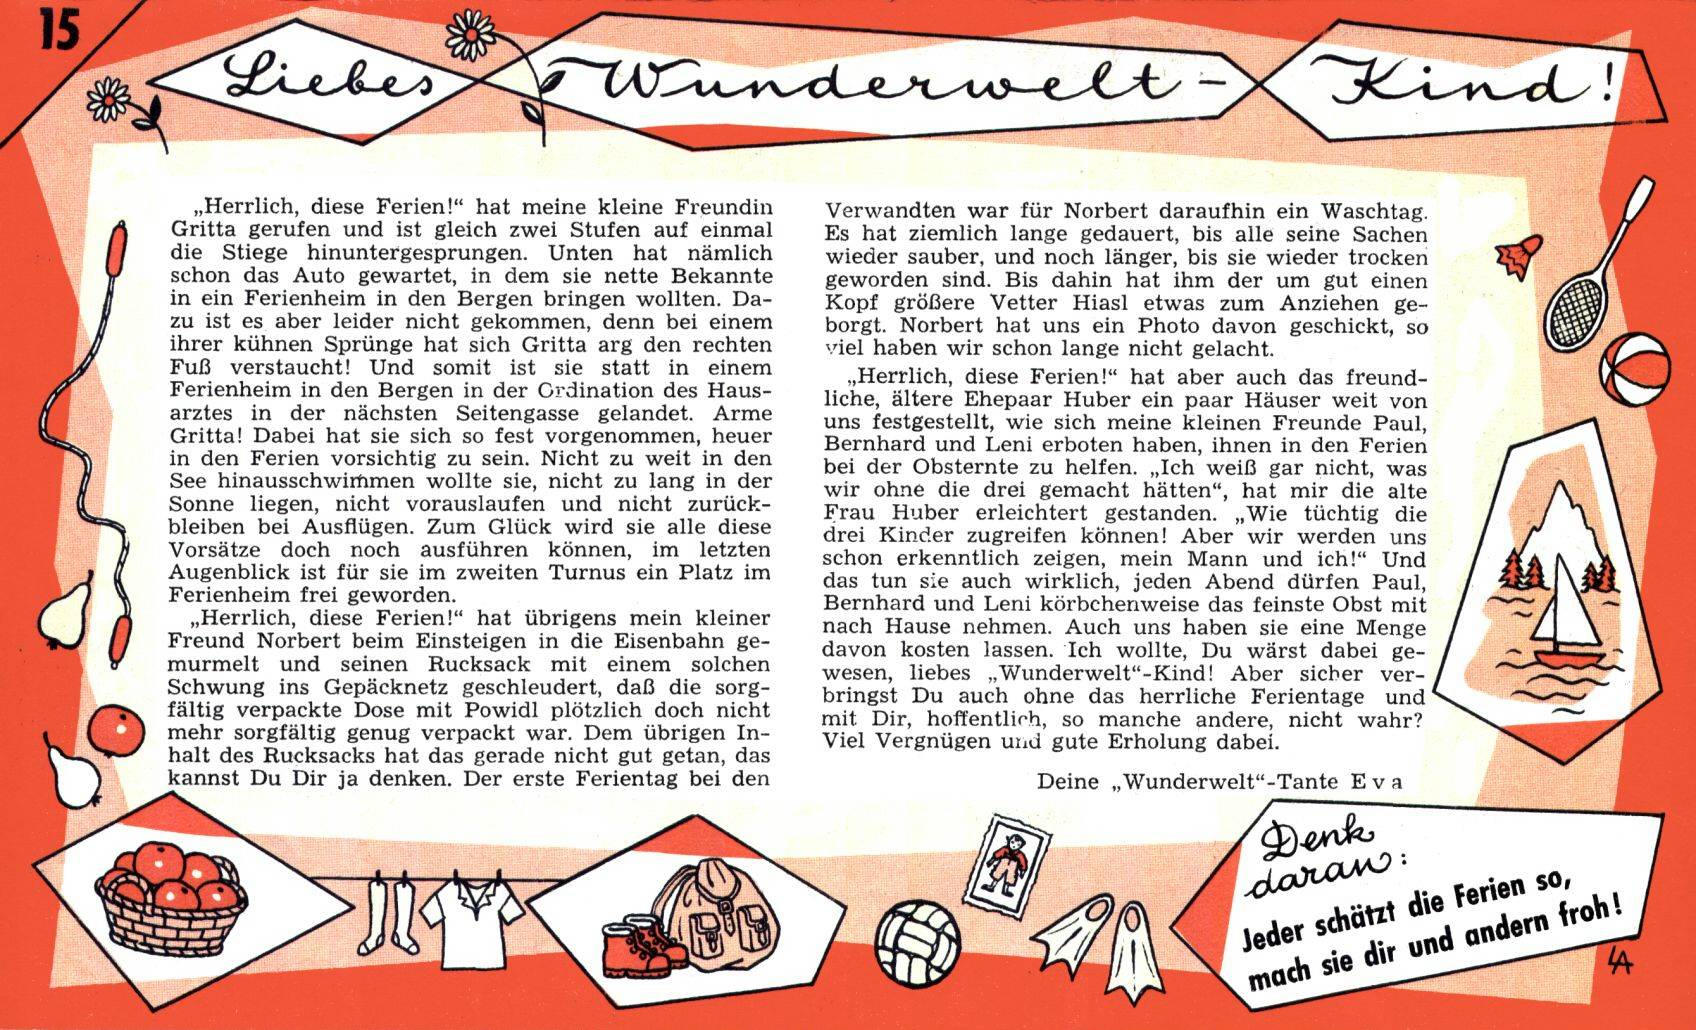 15
Liebes Wunderwelt-Kind!
„Herrlich, diese Ferien!“ hat meine kleine Freundin
Gritta gerufen und ist gleich zwei Stufen auf einmal
die Stiege hinuntergesprungen. Unten hat nämlich
schon das Auto gewartet, in dem sie nette Bekannte
in ein Ferienheim in den Bergen bringen wollten. Da-
zu ist es aber leider nicht gekommen, denn bei einem
ihrer kühnen Sprünge hat sich Gritta arg den rechten
Fuß verstaucht! Und somit ist sie statt in einem
Ferienheim in den Bergen in der Ordination des Haus-
arztes in der nächsten Seitengasse gelandet. Arme
Gritta! Dabei hat sie sich so fest vorgenommen, heuer
in den Ferien vorsichtig zu sein. Nicht zu weit in den
See hinausschwimmen wollte sie, nicht zu lang in der
Sonne liegen, nicht vorauslaufen und nicht zurück-
bleiben bei Ausflügen. Zum Glück wird sie alle diese
Vorsätze doch noch ausführen können, im letzten
Augenblick ist für sie im zweiten Turnus ein Platz im
Ferienheim frei geworden.
„Herrlich, diese Ferien!“ hat übrigens mein kleiner
Freund Norbert beim Einsteigen in die Eisenbahn ge-
murmelt und seinen Rucksack mit einem solchen
Schwung ins Gepäcknetz geschleudert, daß die sorg-
fältig verpackte Dose mit Powidl plötzlich doch nicht
mehr sorgfältig genug verpackt war. Dem übrigen In-
halt des Rucksacks hat das gerade nicht gut getan, das
kannst Du Dir ja denken. Der erste Ferientag bei den
Verwandten war für Norbert daraufhin ein Waschtag.
Es hat ziemlich lange gedauert, bis alle seine Sachen
wieder sauber, und noch länger, bis sie wieder trocken
geworden sind. Bis dahin hat ihm der um gut einen
Kopf größere Vetter Hiasl etwas zum Anziehen ge-
borgt. Norbert hat uns ein Photo davon geschickt, so
viel haben wir schon lange nicht gelacht.
„Herrlich, diese Ferien!“ hat aber auch das freund-
liche, ältere Ehepaar Huber ein paar Häuser weit von
uns festgestellt, wie sich meine kleinen Freunde Paul,
Bernhard und Leni erboten haben, ihnen in den Ferien
bei der Obsternte zu helfen. „Ich weiß gar nicht, was
wir ohne die drei gemacht hätten“, hat mir die alte
Frau Huber erleichtert gestanden. „Wie tüchtig die
drei Kinder zugreifen können! Aber wir werden uns
schon erkenntlich zeigen, mein Mann und ich!“ Und
das tun sie auch wirklich, jeden Abend dürfen Paul,
Bernhard und Leni körbchenweise das feinste Obst mit
nach Hause nehmen. Auch uns haben sie eine Menge
davon kosten lassen. Ich wollte, Du wärst dabei ge-
wesen, liebes „Wunderwelt“-Kind! Aber sicher ver-
bringst Du auch ohne das herrliche Ferientage und
mit Dir, hoffentlich, so manche andere, nicht wahr?
Viel Vergnügen und gute Erholung dabei.
Deine „Wunderwelt“-Tante Eva
Denk
daran:
Jeder schätzt die Ferien so,
mach sie dir und andern froh!
LA